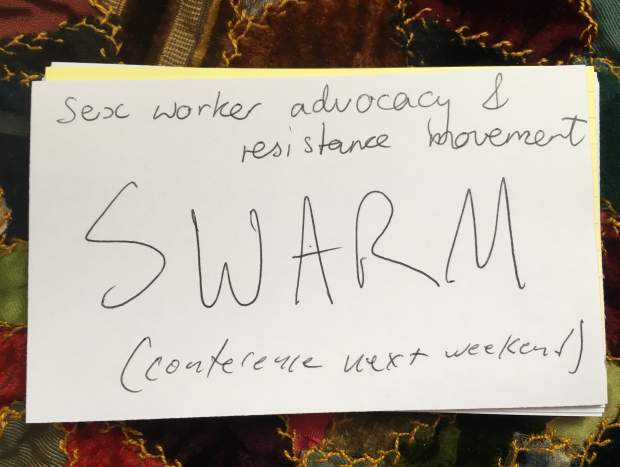 Sex worker advocacy &
resistance movement
SWARM
(conference next weekend)